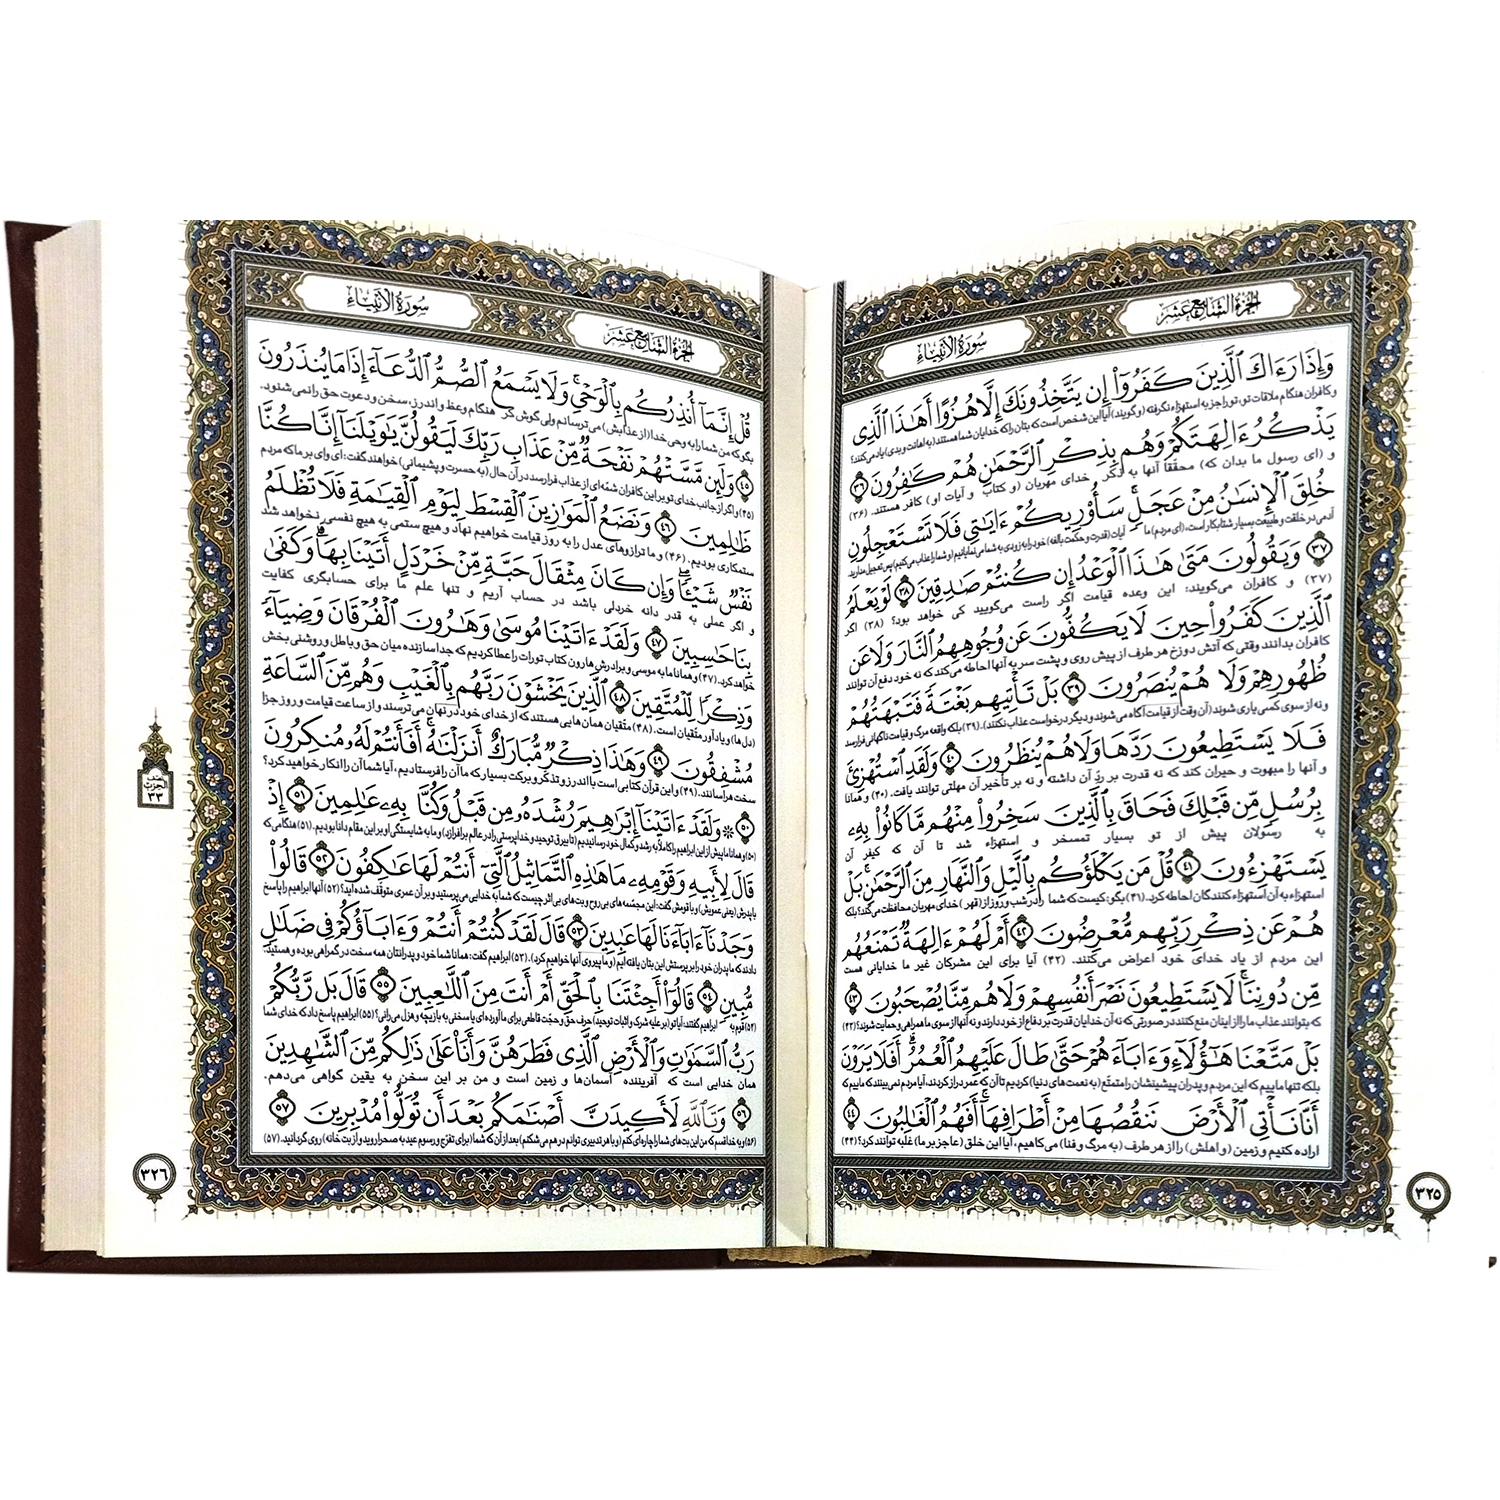 الجزء السابع عشر
سورة الأنبياء
وَإِذَا رَءَاكَ ٱلَّذِينَ كَفَرُوٓا۟ إِن يَتَّخِذُونَكَ إِلَّا هُزُوًا أَهَـٰذَا ٱلَّذِى
و کافران هنگام ملاقات تو، تو را جز به استهزاء نگرفته (و گویند) آیا این شخص است که بتان را که خدایان شما هستند (به اهانت و بدی) یاد می‌کند؟
يَذْكُرُ ءَالِهَتَكُمْ وَهُم بِذِكْرِ ٱلرَّحْمَـٰنِ هُمْ كَـٰفِرُونَ ﴿٣٦﴾
و (ای رسول ما بدان که) محققاً آنها به ذکر خدای مهربان (و کتاب و آیات او) کافر هستند. (۳۶)
خُلِقَ ٱلْإِنسَـٰنُ مِنْ عَجَلٍ ۚ سَأُو۟رِيكُمْ ءَايَـٰتِى فَلَا تَسْتَعْجِلُونِ
آدمی در خلقت و طبیعت بسیار شتابکار است، (ای مردم) ما آیات (قدرت و حکمت بالغه) خود را به زودی به شما می‌نمایانیم (و شما را عذاب می‌کنیم) پس تعجیل مدارید.
﴿٣٧﴾ وَيَقُولُونَ مَتَىٰ هَـٰذَا ٱلْوَعْدُ إِن كُنتُمْ صَـٰدِقِينَ ﴿٣٨﴾ لَوْ يَعْلَمُ
(۳۷) و کافران می‌گویند: این وعده قیامت اگر راست می‌گویید کی خواهد بود؟ (۳۸) اگر
ٱلَّذِينَ كَفَرُوا۟ حِينَ لَا يَكُفُّونَ عَن وُجُوهِهِمُ ٱلنَّارَ وَلَا عَن
کافران بدانند وقتی که آتش دوزخ هر طرف از پیش روی و پشت سر به آنها احاطه می‌کند که نه خود دفع آن توانند
ظُهُورِهِمْ وَلَا هُمْ يُنصَرُونَ ﴿٣٩﴾ بَلْ تَأْتِيهِم بَغْتَةً فَتَبْهَتُهُمْ
و نه از سوی کسی یاری شوند (آن وقت از قیامت آگاه می‌شوند و دیگر درخواست عذاب نکنند). (۳۹) بلکه واقعه مرگ و قیامت ناگهانی فرارسد
فَلَا يَسْتَطِيعُونَ رَدَّهَا وَلَا هُمْ يُنظَرُونَ ﴿٤٠﴾ وَلَقَدِ ٱسْتُهْزِئَ
و آنها را مبهوت و حیران کند که نه قدرت بر ردّ آن داشته و نه بر تأخیر آن مهلتی توانند یافت. (۴۰) و همانا
بِرُسُلٍ مِّن قَبْلِكَ فَحَاقَ بِٱلَّذِينَ سَخِرُوا۟ مِنْهُم مَّا كَانُوا۟ بِهِۦ
به رسولان پیش از تو بسیار تمسخر و استهزاء شد تا آن که کیفر آن
يَسْتَهْزِءُونَ ﴿٤١﴾ قُلْ مَن يَكْلَؤُكُم بِٱلَّيْلِ وَٱلنَّهَارِ مِنَ ٱلرَّحْمَـٰنِ ۗ بَلْ
استهزاء به آن استهزاء کنندگان احاطه کرد. (۴۱) بگو: کیست که شما را در شب و روز از (قهر) خدای مهربان محافظت می‌کند؟ بلکه
هُمْ عَن ذِكْرِ رَبِّهِم مُّعْرِضُونَ ﴿٤٢﴾ أَمْ لَهُمْ ءَالِهَةٌ تَمْنَعُهُم
این مردم از یاد خدای خود اعراض می‌کنند. (۴۲) آیا برای این مشرکان غیر ما خدایانی هست
مِّن دُونِنَا ۚ لَا يَسْتَطِيعُونَ نَصْرَ أَنفُسِهِمْ وَلَا هُم مِّنَّا يُصْحَبُونَ ﴿٤٣﴾
که بتوانند عذاب ما را از اینان منع کنند در صورتی که نه آن خدایان قدرت بر دفاع از خود دارند و نه آنها از سوی ما همراهی و حمایت شوند؟ (۴۳)
بَلْ مَتَّعْنَا هَـٰٓؤُلَآءِ وَءَابَآءَهُمْ حَتَّىٰ طَالَ عَلَيْهِمُ ٱلْعُمُرُ ۗ أَفَلَا يَرَوْنَ
بلکه تنها ماییم که این مردم و پدران پیشینشان را متمتّع (به نعمت‌های دنیا) کردیم تا آن که عمر دراز کردند، آیا مردم نمی‌بینند که ماییم که
أَنَّا نَأْتِى ٱلْأَرْضَ نَنقُصُهَا مِنْ أَطْرَافِهَآ ۚ أَفَهُمُ ٱلْغَـٰلِبُونَ ﴿٤٤﴾
اراده کنیم و زمین (و اهلش) را از هر طرف (به مرگ و فنا) می‌کاهیم، آیا این خلق (عاجز بر ما) غلبه توانند کرد؟ (۴۴)
٣٢٥
الجزء السابع عشر
سورة الأنبياء
قُلْ إِنَّمَآ أُنذِرُكُم بِٱلْوَحْىِ ۚ وَلَا يَسْمَعُ ٱلصُّمُّ ٱلدُّعَآءَ إِذَا مَا يُنذَرُونَ
بگو که من شما را به وحی خدا (از عذابش) می‌ترسانم ولی گوش کر هنگام وعظ و اندرز، سخن و دعوت حق را نمی‌شنود.
﴿٤٥﴾ وَلَئِن مَّسَّتْهُمْ نَفْحَةٌ مِّنْ عَذَابِ رَبِّكَ لَيَقُولُنَّ يَـٰوَيْلَنَآ إِنَّا كُنَّا
(۴۵) و اگر از جانب خدای تو بر این کافران شمّه‌ای از عذاب فرارسد در آن حال (به حسرت و پشیمانی) خواهند گفت: ای وای بر ما که مردم
ظَـٰلِمِينَ ﴿٤٦﴾ وَنَضَعُ ٱلْمَوَٰزِينَ ٱلْقِسْطَ لِيَوْمِ ٱلْقِيَـٰمَةِ فَلَا تُظْلَمُ
ستمکاری بودیم. (۴۶) و ما ترازوهای عدل را به روز قیامت خواهیم نهاد و هیچ ستمی به هیچ نفسی نخواهد شد
نَفْسٌ شَيْـًٔا ۖ وَإِن كَانَ مِثْقَالَ حَبَّةٍ مِّنْ خَرْدَلٍ أَتَيْنَا بِهَا ۗ وَكَفَىٰ
و اگر عملی به قدر دانه خردلی باشد در حساب آریم و تنها علم ما برای حسابگری کفایت
بِنَا حَـٰسِبِينَ ﴿٤٧﴾ وَلَقَدْ ءَاتَيْنَا مُوسَىٰ وَهَـٰرُونَ ٱلْفُرْقَانَ وَضِيَآءً
خواهد کرد. (۴۷) و همانا ما به موسی و برادرش هارون کتاب تورات را عطا کردیم که جدا سازنده میان حق و باطل و روشنی بخش
وَذِكْرًا لِّلْمُتَّقِينَ ﴿٤٨﴾ ٱلَّذِينَ يَخْشَوْنَ رَبَّهُم بِٱلْغَيْبِ وَهُم مِّنَ ٱلسَّاعَةِ
(دل‌ها) و یادآور متّقیان است. (۴۸) متقیان همان هایی هستند که از خدای خود در نهان می‌ترسند و از ساعت قیامت و روز جزا
مُشْفِقُونَ ﴿٤٩﴾ وَهَـٰذَا ذِكْرٌ مُّبَارَكٌ أَنزَلْنَـٰهُ ۚ أَفَأَنتُمْ لَهُۥ مُنكِرُونَ
سخت هراسانند. (۴۹) و این قرآن کتابی است با اندرز و تذکّر و برکت بسیار که ما آن را فرستادیم، آیا شما آن را انکار خواهید کرد؟
﴿٥٠﴾ ۞ وَلَقَدْ ءَاتَيْنَآ إِبْرَٰهِيمَ رُشْدَهُۥ مِن قَبْلُ وَكُنَّا بِهِۦ عَـٰلِمِينَ ﴿٥١﴾ إِذْ
(۵۰) و همانا ما پیش از این ابراهیم را کاملاً به رشد و کمال خود رسانیدیم (تا بیرق توحید و خداپرستی را در عالم برافرازد) و ما به شایستگی او بر این مقام دانا بودیم. (۵۱) هنگامی که
قَالَ لِأَبِيهِ وَقَوْمِهِۦ مَا هَـٰذِهِ ٱلتَّمَاثِيلُ ٱلَّتِىٓ أَنتُمْ لَهَا عَـٰكِفُونَ ﴿٥٢﴾ قَالُوا۟
با پدرش (یعنی عمویش) و با قومش گفت: این مجسّمه های بی‌روح و بت‌های بی‌اثر چیست که شما به خدایی می‌پرستید و بر آن عمری متوقف شده اید؟ (۵۲) آنها ابراهیم را پاسخ
وَجَدْنَآ ءَابَآءَنَا لَهَا عَـٰبِدِينَ ﴿٥٣﴾ قَالَ لَقَدْ كُنتُمْ أَنتُمْ وَءَابَآؤُكُمْ فِى ضَلَـٰلٍ
دادند که ما پدران خود را بر پرستش این بتان یافته ایم (و ما پیروی آنها خواهیم کرد). (۵۳) ابراهیم گفت: همانا شما خود و پدرانتان همه سخت در گمراهی بوده و هستید.
مُّبِينٍ ﴿٥٤﴾ قَالُوٓا۟ أَجِئْتَنَا بِٱلْحَقِّ أَمْ أَنتَ مِنَ ٱللَّـٰعِبِينَ ﴿٥٥﴾ قَالَ بَل رَّبُّكُمْ
(۵۴) قوم به ابراهیم گفتند: آیا تو (بر علیه شرک و اثبات توحید) حرف حق و حجّت قاطعی برای ما آورده ای یا سخنی به بازیچه و هزل می‌رانی؟ (۵۵) ابراهیم پاسخ داد که خدای شما
رَبُّ ٱلسَّمَـٰوَٰتِ وَٱلْأَرْضِ ٱلَّذِى فَطَرَهُنَّ وَأَنَا۠ عَلَىٰ ذَٰلِكُم مِّنَ ٱلشَّـٰهِدِينَ
همان خدایی است که آفریننده آسمان‌ها و زمین است و من بر این سخن به یقین گواهی می‌دهم.
﴿٥٦﴾ وَتَٱللَّهِ لَأَكِيدَنَّ أَصْنَـٰمَكُم بَعْدَ أَن تُوَلُّوا۟ مُدْبِرِينَ ﴿٥٧﴾
(۵۶) و به خدا قسم که من این بت‌های شما را چاره‌ای کنم (و با هر تدبیری توانم در هم می‌شکنم) بعد از آن که شما (برای تفرّج و رسوم عید به صحرا روید و از بت خانه) روی گردانید. (۵۷)
نصف الحزب ٣٣
٣٢٦